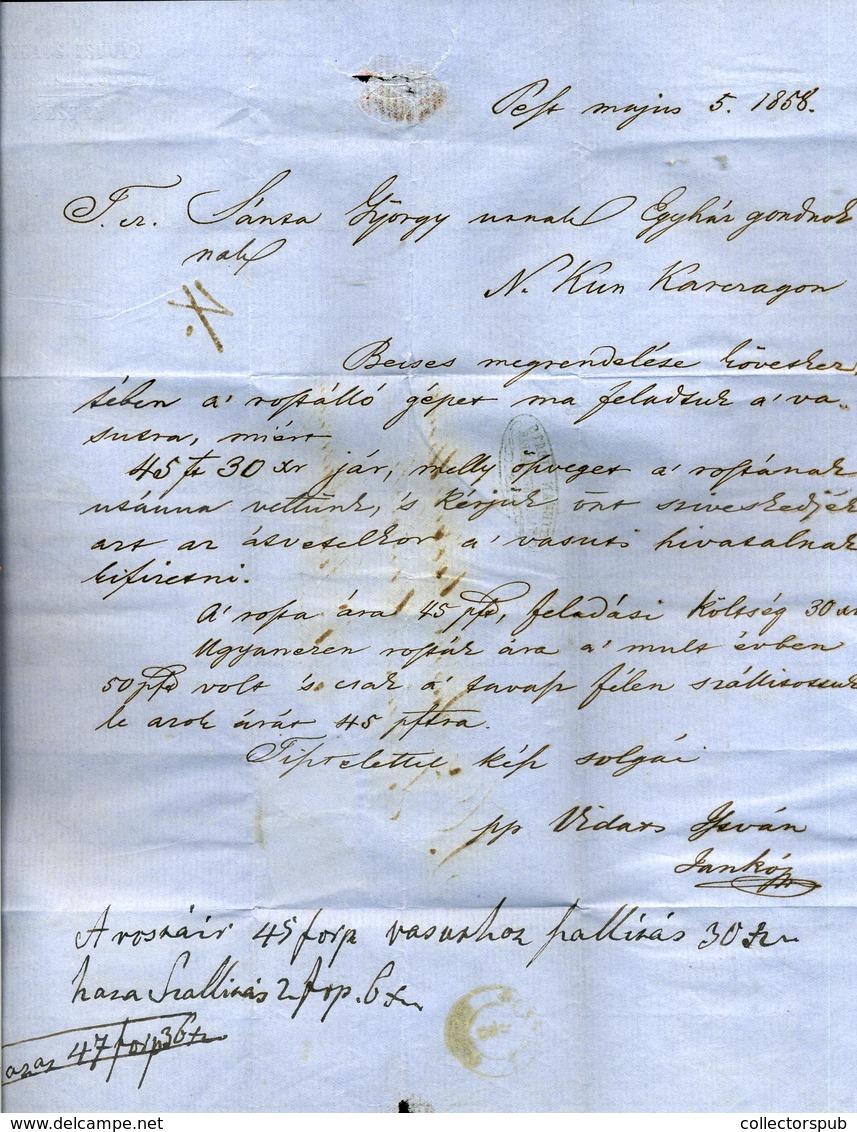 Pest május 5. 1858.
T. cz. Sánta György urnak Egyház gondnok
nak
N. Kun Karczagon
Becses megrendelése következ
tében a' rostálló gépet ma feladtuk a' va-
sutra, miért
45 ft 30 xr jár, melly öszveget a' rostának
utánna vettünk, 's kérjük önt sziveskedjék
azt az átvetelkor a' vasuti hivatalnak
kifizetni.
A' rosta ára 45 pft, feladási költség 30 xr
Ugyanezen rosták ára a' mult évben
50 pft volt 's csak a' tavasz félen szállitottuk
le azok árát 45 pftra.
Tisztelettel kész szolgái
pp Vidats István
Jankó
A rostáir 45 forp vasuthoz szallitás 30 xr
haza Szallitás 2 fop. 6 xr
azaz 47 forp 36 xr
collectorspub